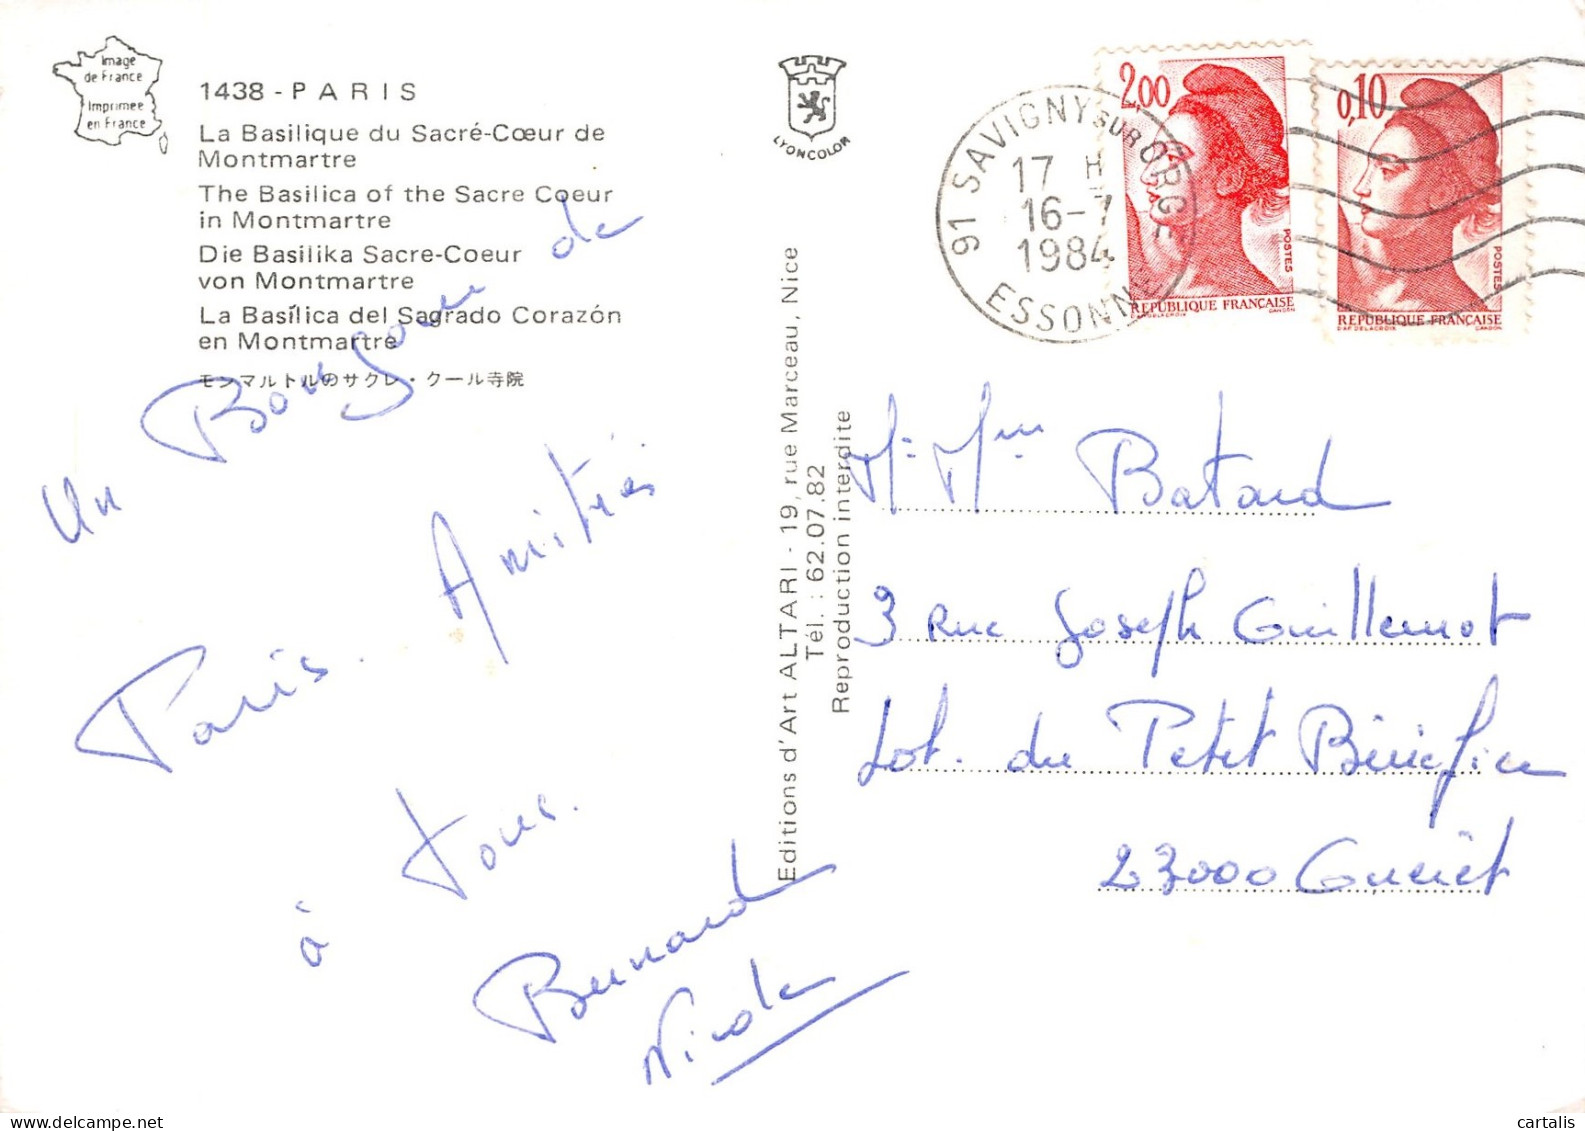 Image
de France
Imprimée
en France
1438 - PARIS
La Basilique du Sacré-Cœur de
Montmartre
The Basilica of the Sacre Coeur
in Montmartre
Die Basilika Sacre-Coeur
von Montmartre
La Basílica del Sagrado Corazón
en Montmartre
モンマルトルのサクレ・クール寺院
LYONCOLOR
Un Bonjour de
Paris. Amitiés
à tous.
Bernard
Nicole
Editions d'Art ALTARI - 19, rue Marceau, Nice
Tél. : 62.07.82
Reproduction interdite
91 SAVIGNY SUR ORGE
17 H
16-7
1984
ESSONNE
2,00
POSTES
REPUBLIQUE FRANÇAISE
D'AP DELACROIX GANDON
0,10
POSTES
REPUBLIQUE FRANÇAISE
D'AP DELACROIX GANDON
Mr Mme Batard
3 Rue Joseph Guillemot
Lot. du Petit Bénéfice
23000 Guéret
delcampe.net
cartalis